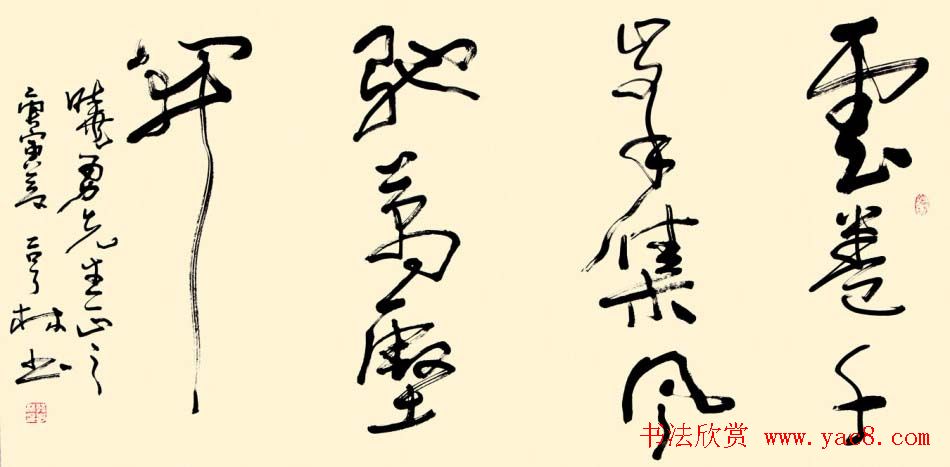 雲卷千
峯集風
馳萬壑
開
曉勇先生正之
庚寅夏 林书
书法欣赏 www.yac8.com